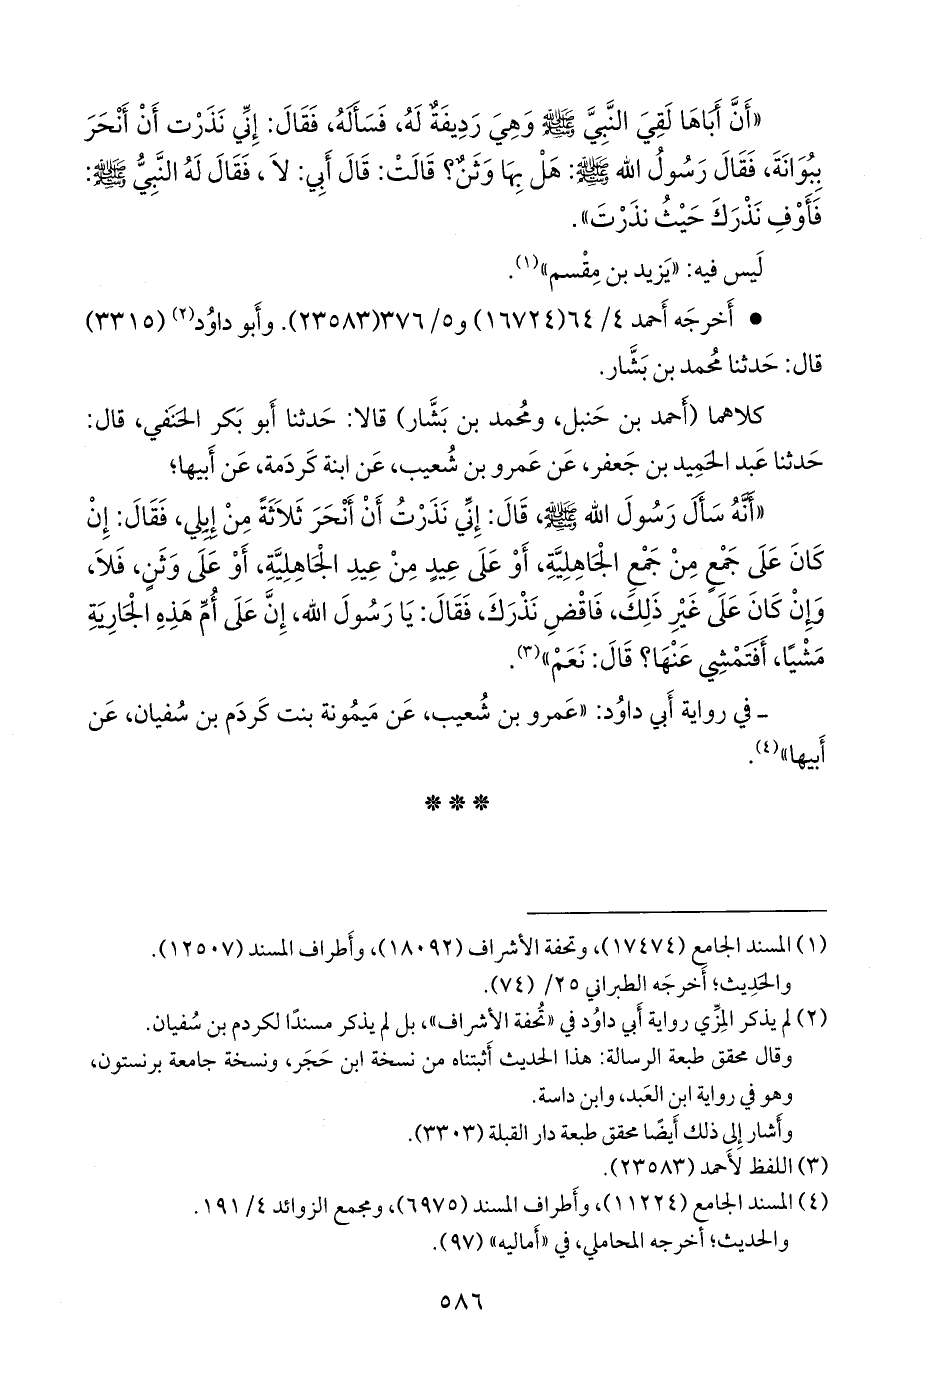 «أَنَّ أَبَاهَا لَقِيَ النَّبِيَّ ﷺ وَهِيَ رَدِيفَةٌ لَهُ، فَسَأَلَهُ، فَقَالَ: إِنِّي نَذَرْت أَنْ أَنْحَرَ
بِبُوَانَةَ، فَقَالَ رَسُولُ الله ﷺ: هَلْ بِهَا وَثَنٌ؟ قَالَتْ: قَالَ أَبِي: لاَ، فَقَالَ لَهُ النَّبِيُّ ﷺ:
فَأَوْفِ نَذْرَكَ حَيْثُ نذَرْتَ».
لَيس فيه: «يَزيد بن مِقْسم»(١).
● أَخرجَه أَحمد ٤/ ٦٤(١٦٧٢٤) و٥/ ٣٧٦(٢٣٥٨٣). وأَبو داوُد(٢) (٣٣١٥)
قال: حَدثنا مُحمد بن بَشَّار.
كلاهما (أَحمد بن حَنبل، ومُحمد بن بَشَّار) قالا: حَدثنا أَبو بَكر الحَنَفي، قال:
حَدثنا عَبد الحَميد بن جَعفر، عَن عَمرو بن شُعيب، عَن ابنة كَردَمة، عَن أَبيها؛
«أَنَّهُ سَأَلَ رَسُولَ الله ﷺ، قَالَ: إِنِّي نَذَرْتُ أَنْ أَنْحَرَ ثَلاَثَةً مِنْ إِبِلِي، فَقَالَ: إِنْ
كَانَ عَلَى جَمْعٍ مِنْ جَمْعِ الْجَاهِلِيَّةِ، أَوْ عَلَى عِيدٍ مِنْ عِيدِ الْجَاهِلِيَّةِ، أَوْ عَلَى وَثَنٍ، فَلاَ،
وَإِنْ كَانَ عَلَى غَيْرِ ذَلِكَ، فَاقْضِ نَذْرَكَ، فَقَالَ: يَا رَسُولَ الله، إِنَّ عَلَى أُمِّ هَذِهِ الْجَارِيَةِ
مَشْيًا، أَفَتَمْشِي عَنْهَا؟ قَالَ: نَعَمْ»(٣).
ـ في رواية أَبي داوُد: «عَمرو بن شُعيب، عَن مَيمُونة بنت كَردَم بن سُفيان، عَن
أَبيها»(٤).
* * *
(١) المسند الجامع (١٧٤٧٤)، وتحفة الأشراف (١٨٠٩٢)، وأَطراف المسند (١٢٥٠٧).
والحَدِيث؛ أَخرجَه الطبراني ٢٥/ (٧٤).
(٢) لم يذكر المِزِّي رواية أَبي داوُد في «تُحفة الأشراف»، بل لم يذكر مسندًا لكردم بن سُفيان.
وقال محقق طبعة الرسالة: هذا الحديث أثبتناه من نسخة ابن حَجَر، ونسخة جامعة برنستون،
وهو في رواية ابن العَبد، وابن داسة.
وأَشار إلى ذلك أَيضًا محقق طبعة دار القبلة (٣٣٠٣).
(٣) اللفظ لأَحمد (٢٣٥٨٣).
(٤) المسند الجامع (١١٢٢٤)، وأَطراف المسند (٦٩٧٥)، ومجمع الزوائد ٤/ ١٩١.
والحديث؛ أخرجه المحاملي، في «أماليه» (٩٧).
٥٨٦